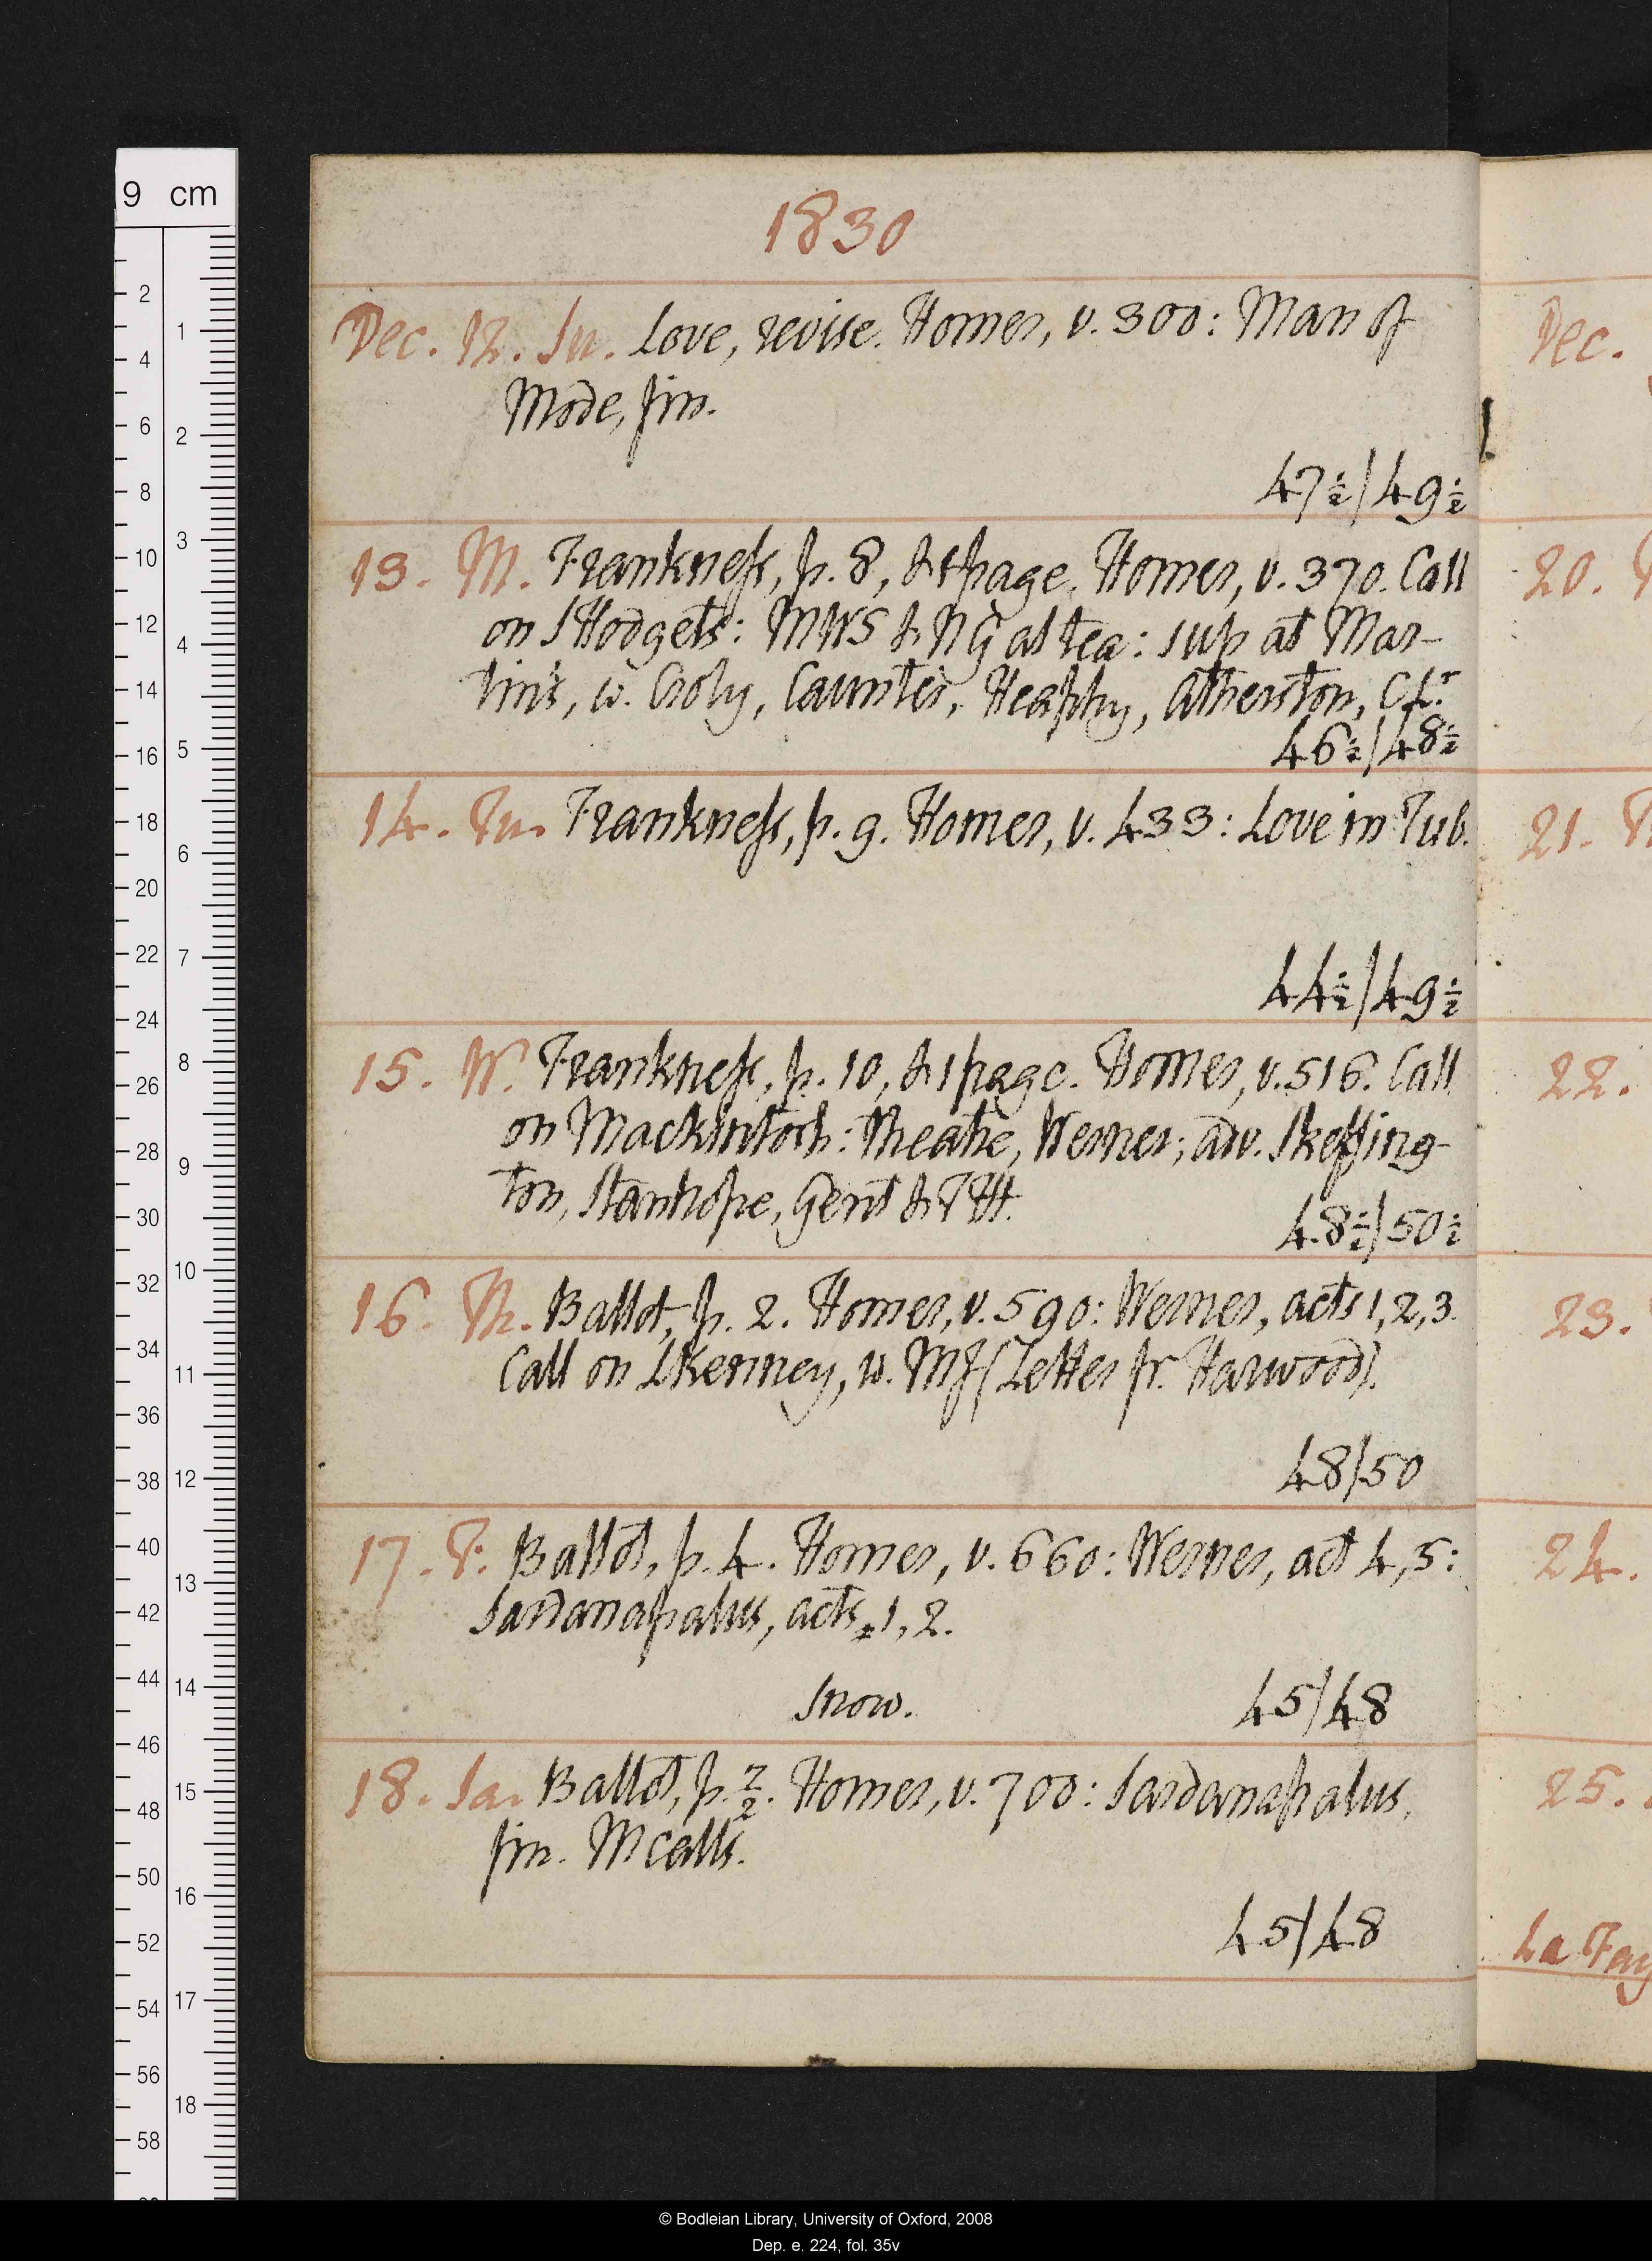 1830
Dec. 12. Su. Love, revise. Homer, v. 300: Man of
Mode, fin.
47½/49½
13. M. Frankness, p. 8, & 1 page. Homer, v. 370. Call
on S Hodgets: MWS & NG at tea: sup at Mar-
tin's, w. Croly, Caunter, Heaphy, Atherston,
46½/48½
14. Tu. Frankness, p. 9. Homer, v. 433: Love in Tub.
44½/49½
15. W. Frankness, p. 10, & 1 page. Homer, v. 516. Call
on Mackintosh: theatre, Werner; adv. Skeffing-
ton, Stanhope, Gent & TH.
48½/50½
16. Th. Ballot, p. 2. Homer, v. 590: Werner, acts 1, 2, 3.
Call on LKenney, w. MJ (Letter fr. Harwood).
48/50
17. F. Ballot, p. 4. Homer, v. 660: Werner, act 4, 5:
Sardanapalus, acts 1, 2.
Snow. 45/48
18. Sa. Ballot, p. 7/2. Homer, v. 700: Sardanapalus,
fin. M calls.
45/48
Dec.
20.
21.
22.
23.
24.
25.
La Fay
9 cm
2
4
6
8
10
12
14
16
18
20
22
24
26
28
30
32
34
36
38
40
42
44
46
48
50
52
54
56
58
1
2
3
4
5
6
7
8
9
10
11
12
13
14
15
16
17
18
© Bodleian Library, University of Oxford, 2008
Dep. e. 224, fol. 35v